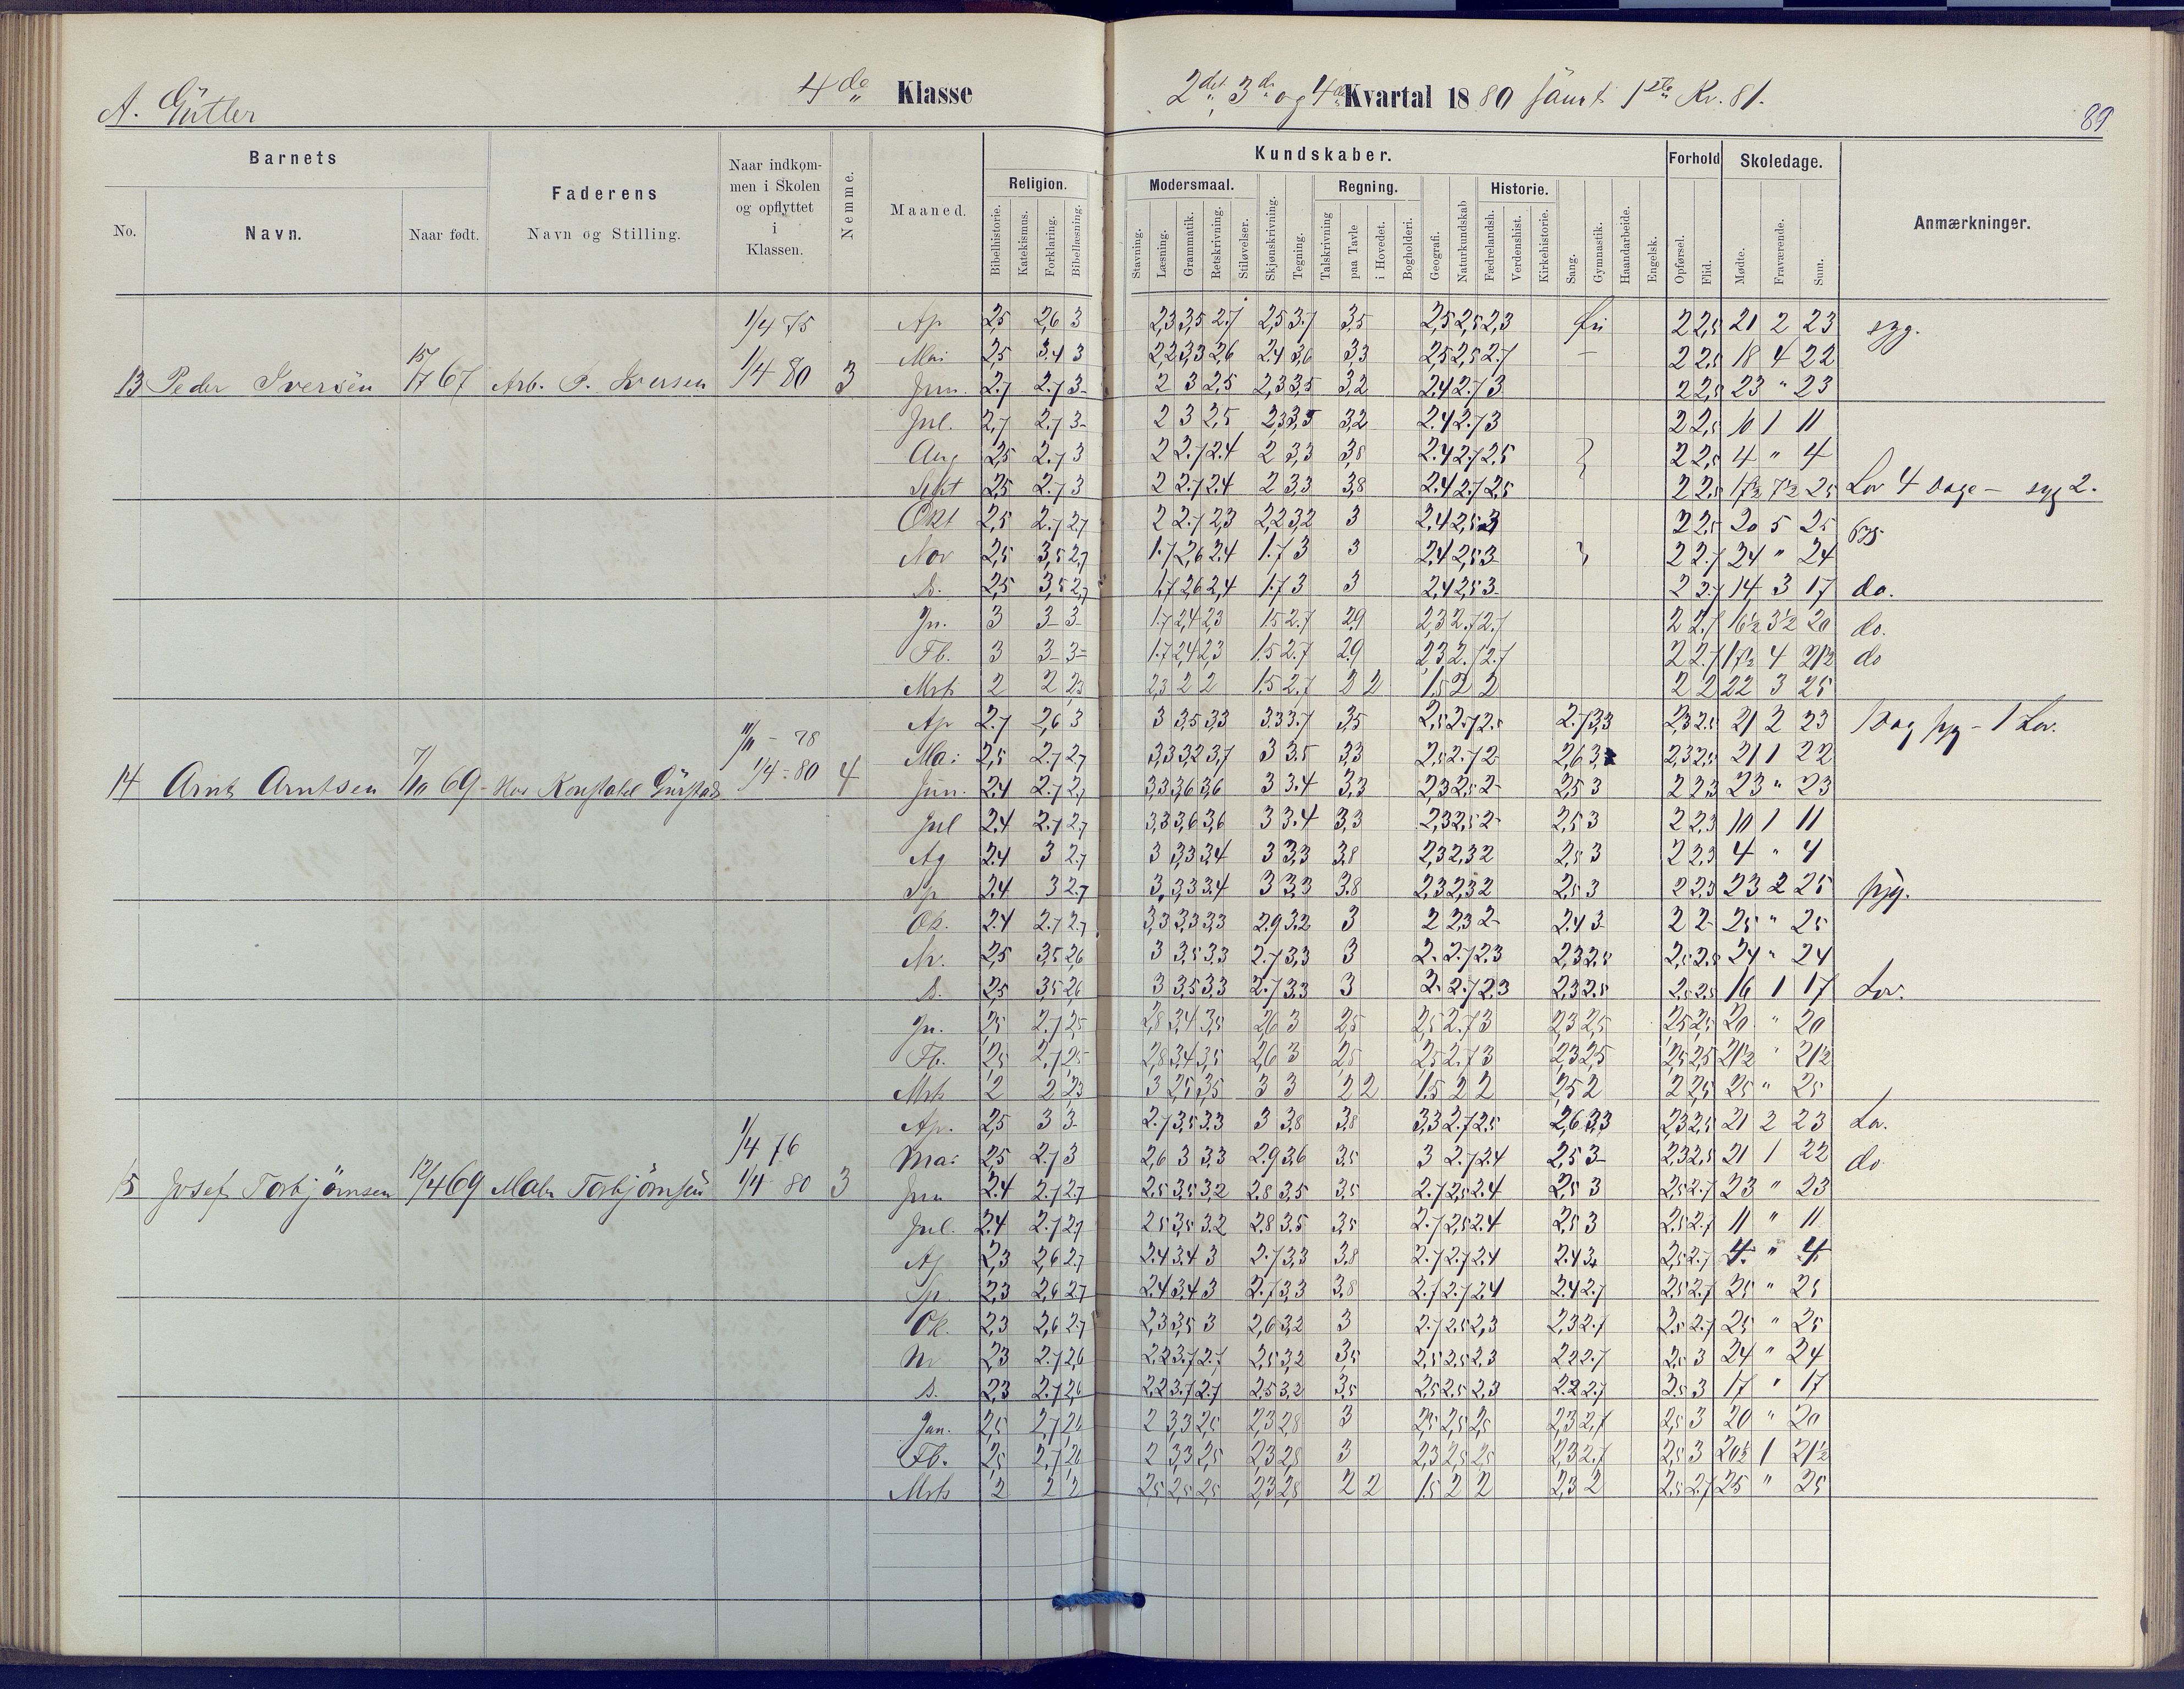 A. Gütler
4de Klasse
2det, 3de og 4de Kvartal 1880 samt 1ste Kv. 81.
89
Barnets
No.
Navn.
Naar født.
Faderens
Navn og Stilling.
Naar indkom-
men i Skolen
og opflyttet
i
Klassen.
Nemme.
Maaned.
Kundskaber.
Religion.
Bibelhistorie.
Katekismus.
Forklaring.
Bibellæsning.
Modersmaal.
Stavning.
Læsning.
Grammatik.
Retskrivning.
Stiløvelser.
Skjønskrivning.
Tegning.
Regning.
Talskrivning
paa Tavle
i Hovedet.
Bogholderi.
Geografi.
Naturkundskab
Historie.
Fædrelandsh.
Verdenshist.
Kirkehistorie.
Sang.
Gymnastik.
Haandarbeide.
Engelsk.
Forhold
Opførsel.
Flid.
Skoledage.
Mødte.
Fraværende.
Sum.
Anmærkninger.
1/4 75 Ap 2,5 2,6 3 2,3 3,5 2.7 2,5 3.7 3,5 2,5 2,5 2,3 fri 2 2,5 21 2 23 syg.
1/4 80 Mai 2,5 3.4 3 2,2 3,3 2,6 2,4 3,6 3,3 2,5 2,5 2.7 – 2 2,5 18 4 22
13 Peder Iversen 15/7 67 Arb. P. Iversen 3 Jun. 2.7 2.7 3 2 3 2,5 2,3 3,5 3,2 2,4 2.7 3 2 2,5 23 " 23
Jul. 2,7 2.7 3 2 3 2,5 2,3 3,5 3,2 2.4 2.7 3 2 2,5 10 1 11
Aug 2,5 2.7 3 2 2.7 2.4 2 3,3 3,8 2.4 2.7 2,5 2 2,5 4 " 4
Sept 2,5 2.7 3 2 2.7 2.4 2 3,3 3,8 2.4 2.7 2,5 2 2,5 17½ 7½ 25 Lov 4 Dage – syg 2.
Okt 2,5 2.7 2,7 2 2.7 2,3 2,2 3,2 3 2,4 2,5 3 2 2,5 20 5 25 syg
Nov 2,5 3,5 2,7 1.7 2,6 2.4 1.7 3 3 2,4 2,5 3 2 2.7 24 " 24
D. 2,5 3,5 2,7 1,7 2,6 2,4 1.7 3 3 2,4 2,5 3 2 2.7 14 3 17 do.
Jn. 3 3 3 1.7 2,4 2,3 1,5 2.7 2,9 2,3 2.7 2.7 2 2.7 16½ 3½ 20 do.
Fb. 3 3 3 1.7 2,4 2,3 1.5 2.7 2,9 2,3 2.7 2.7 2 2.7 17½ 4 21½ do
Mrts 2 2 2,3 2,3 2 2 1,5 2.7 2 2 1,5 2 2 2 2 22 3 25
11/11 – 78 Ap 2.7 2,6 3 3 3,5 3,3 3.3 3.7 3,5 2,5 2.7 2,5 2.7 3,3 2,3 2,5 21 2 23 1 Dag syg – 1 Lov.
1/4 – 80 Mai 2,5 2.7 2,7 3,3 3,2 3,7 3 3.5 3,3 2,5 2.7 2 2,6 3 2,3 2,5 21 1 22
14 Arnt Arntsen 7/10 69 – Hos Konstabel Gürstad 4 Jun. 2.4 2.7 2,7 3,3 3,6 3,6 3 3.4 3,3 2,3 2,5 2 2,5 3 2 2,3 23 " 23
Jul 2.4 2.7 2,7 3,3 3,6 3,6 3 3.4 3,3 2,3 2,5 2 2,5 3 2 2,3 10 1 11
Ag 2.4 3 2.7 3 3,3 3,4 3 3,3 3,8 2,3 2,3 2 2,5 3 2 2,3 4 " 4
Sp 2.4 3 2,7 3 3,3 3.4 3 3,3 3.8 2,3 2,3 2 2,5 3 2 2,3 23 2 25 syg.
Ok. 2.4 2.7 2,7 3,3 3,3 3,3 2.9 3,2 3 2 2,3 2 2.4 3 2 2 25 " 25
Nv. 2,5 3,5 2,6 3 3,5 3,3 2.7 3,3 3 2 2.7 2,3 2,3 2,5 2,5 2,5 24 " 24
D. 2,5 3,5 2,6 3 3,5 3,3 2.7 3.3 3 2 2.7 2,3 2,3 2,5 2,5 2,5 16 1 17 Lov.
Jn. 2,5 2.7 2,5 2,8 3,4 3,5 2,6 3 2,5 2,5 2.7 3 2,3 2,5 2,5 2,5 20 " 20
Fb. 2,5 2,7 2,5 2,8 3,4 3,5 2,6 3 2,5 2,5 2.7 3 2,3 2,5 2,5 2,5 21½ " 21½
Mrts 2 2 2,3 3 2,5 3,5 3 3 2 2 1.5 2 2 2,5 2 2 2,5 25 " 25
Ap. 2,5 3 3 2.7 3,5 3.3 3 3,8 3,8 3,3 2.7 2,5 2,6 3,3 2,3 2,5 21 2 23 Lov.
1/4 76 Mai 2,5 2.7 3 2,6 3 3,3 2.9 3,6 3,5 3 2.7 2.4 2,5 3 2,3 2,5 21 1 22 do
15 Josef Torbjörnsen 12/4 69 Maler Torbjörnsen 1/4 80 3 Jun 2.4 2.7 2,7 2.5 3,5 3,2 2.8 3,5 3,5 2.7 2,5 2.4 2,5 3 2,5 2.7 23 " 23
Jul. 2.4 2.7 2,7 2,5 3,5 3.2 2.8 3.5 3,5 2.7 2,5 2.4 2,5 3 2,5 2.7 11 " 11
Ag 2,3 2,6 2.7 2.4 3.4 3 2.7 3,3 3.8 2.7 2.7 2.4 2.4 3 2,5 2.7 4 " 4
Sp. 2,3 2,6 2.7 2.4 3,4 3 2.7 3,3 3,8 2.7 2.7 2,4 2.4 2.7 2,5 2.7 25 " 25
Ok. 2,3 2,6 2.7 2,3 3,5 3 2,6 3,2 3 2.7 2,5 2,3 2,3 2.7 2,5 2.7 25 " 25
Nv 2,3 2.7 2,6 2,2 3.7 2.7 2,5 3,2 3,5 2,5 2,5 2,3 2,2 2.7 2,5 3 24 " 24
D. 2,3 2.7 2,6 2,2 3.7 2.7 2,5 3,2 3,5 2,5 2,5 2,3 2,2 2,7 2,5 3 17 " 17
Jan. 2,5 2,7 2,6 2 3,3 2,5 2,3 2,8 3 2,5 2,5 2,5 2,3 2,7 2,5 3 20 " 20
Fb. 2,5 2,7 2,6 2 3,3 2,5 2,3 2,8 3 2,3 2,5 2,5 2,3 2.7 2,5 3 20½ 1 21½
Mrts 2 2 2 2,5 2,5 2,5 2,3 2,8 2 2 1,5 2 2 2,3 2 2,5 2,7 25 " 25